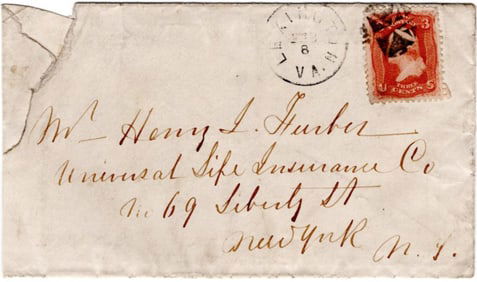 LEXINGTON
FEB
8
VA.
3
U S
THREE
CENTS
Mr Henry L. Furber
Universal Life Insurance Co
No 69 Liberty St
New York
N. Y.